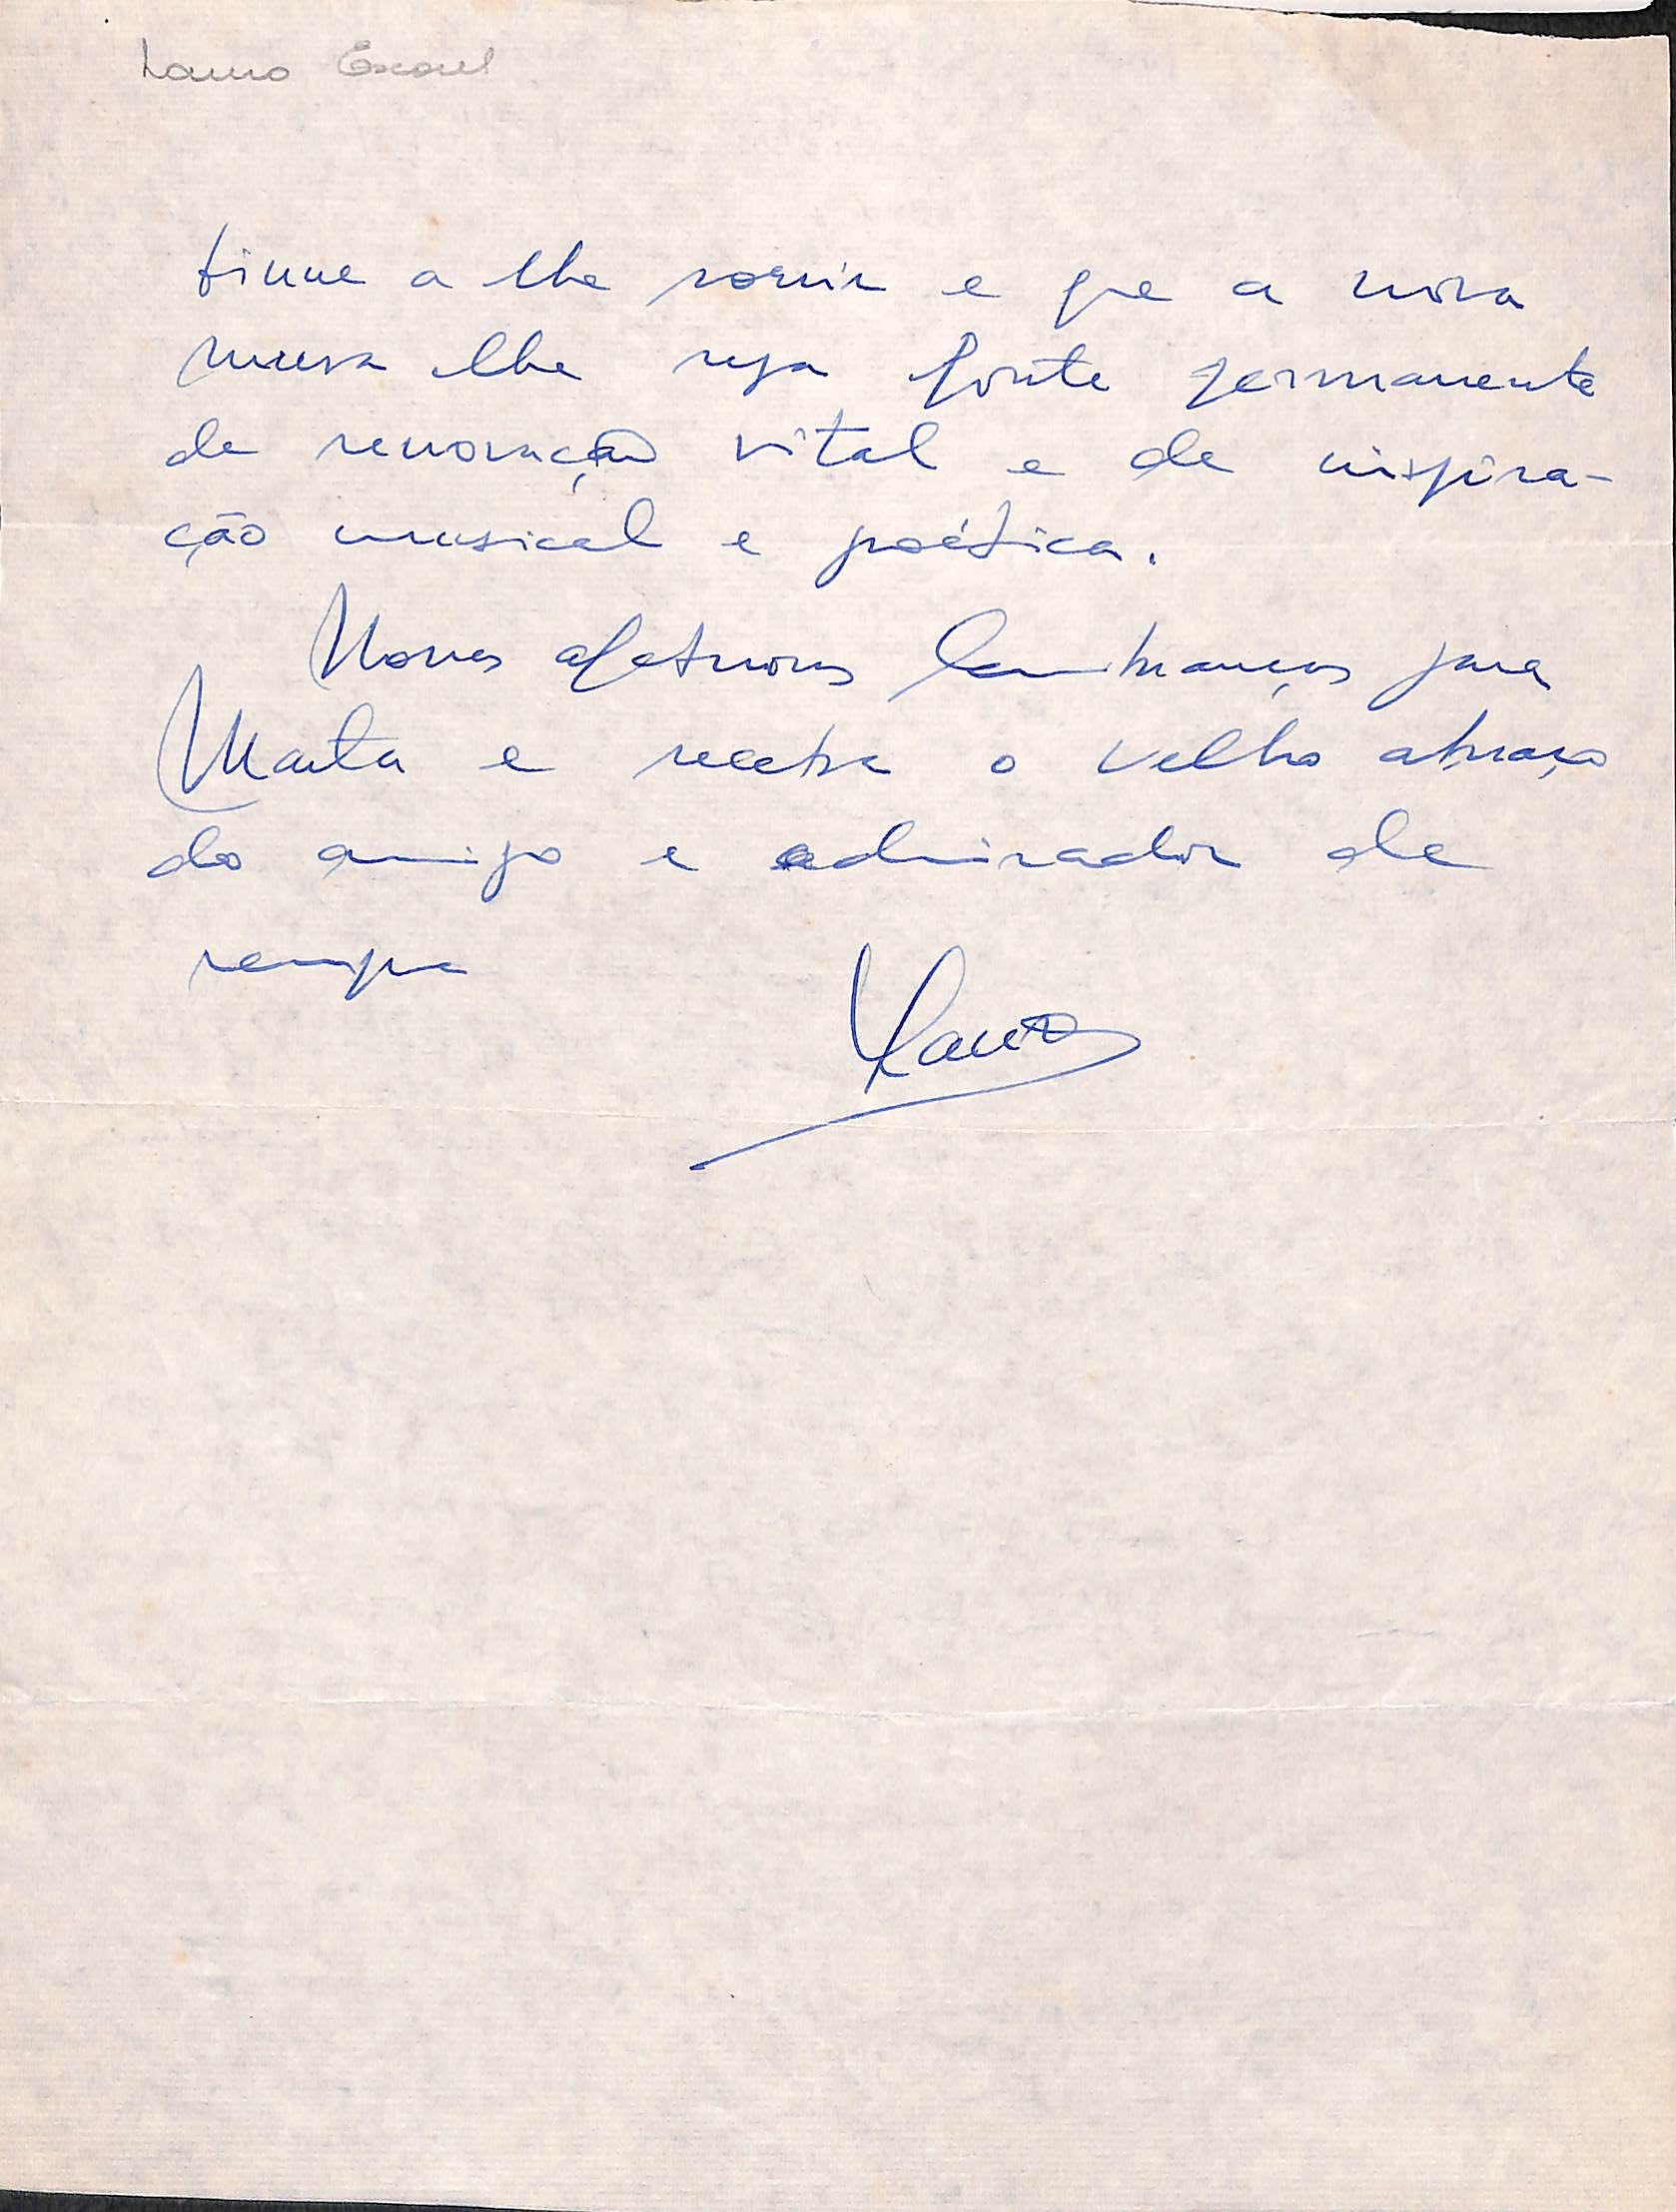 Lauro Escorel
tinue a lhe sorrir e que a nova
musa lhe seja fonte permanente
de renovação vital e de inspira-
ção musical e poética.
Novas afetuosas lembranças para
Marta e receba o velho abraço
do amigo e admirador de
sempre
Lauro